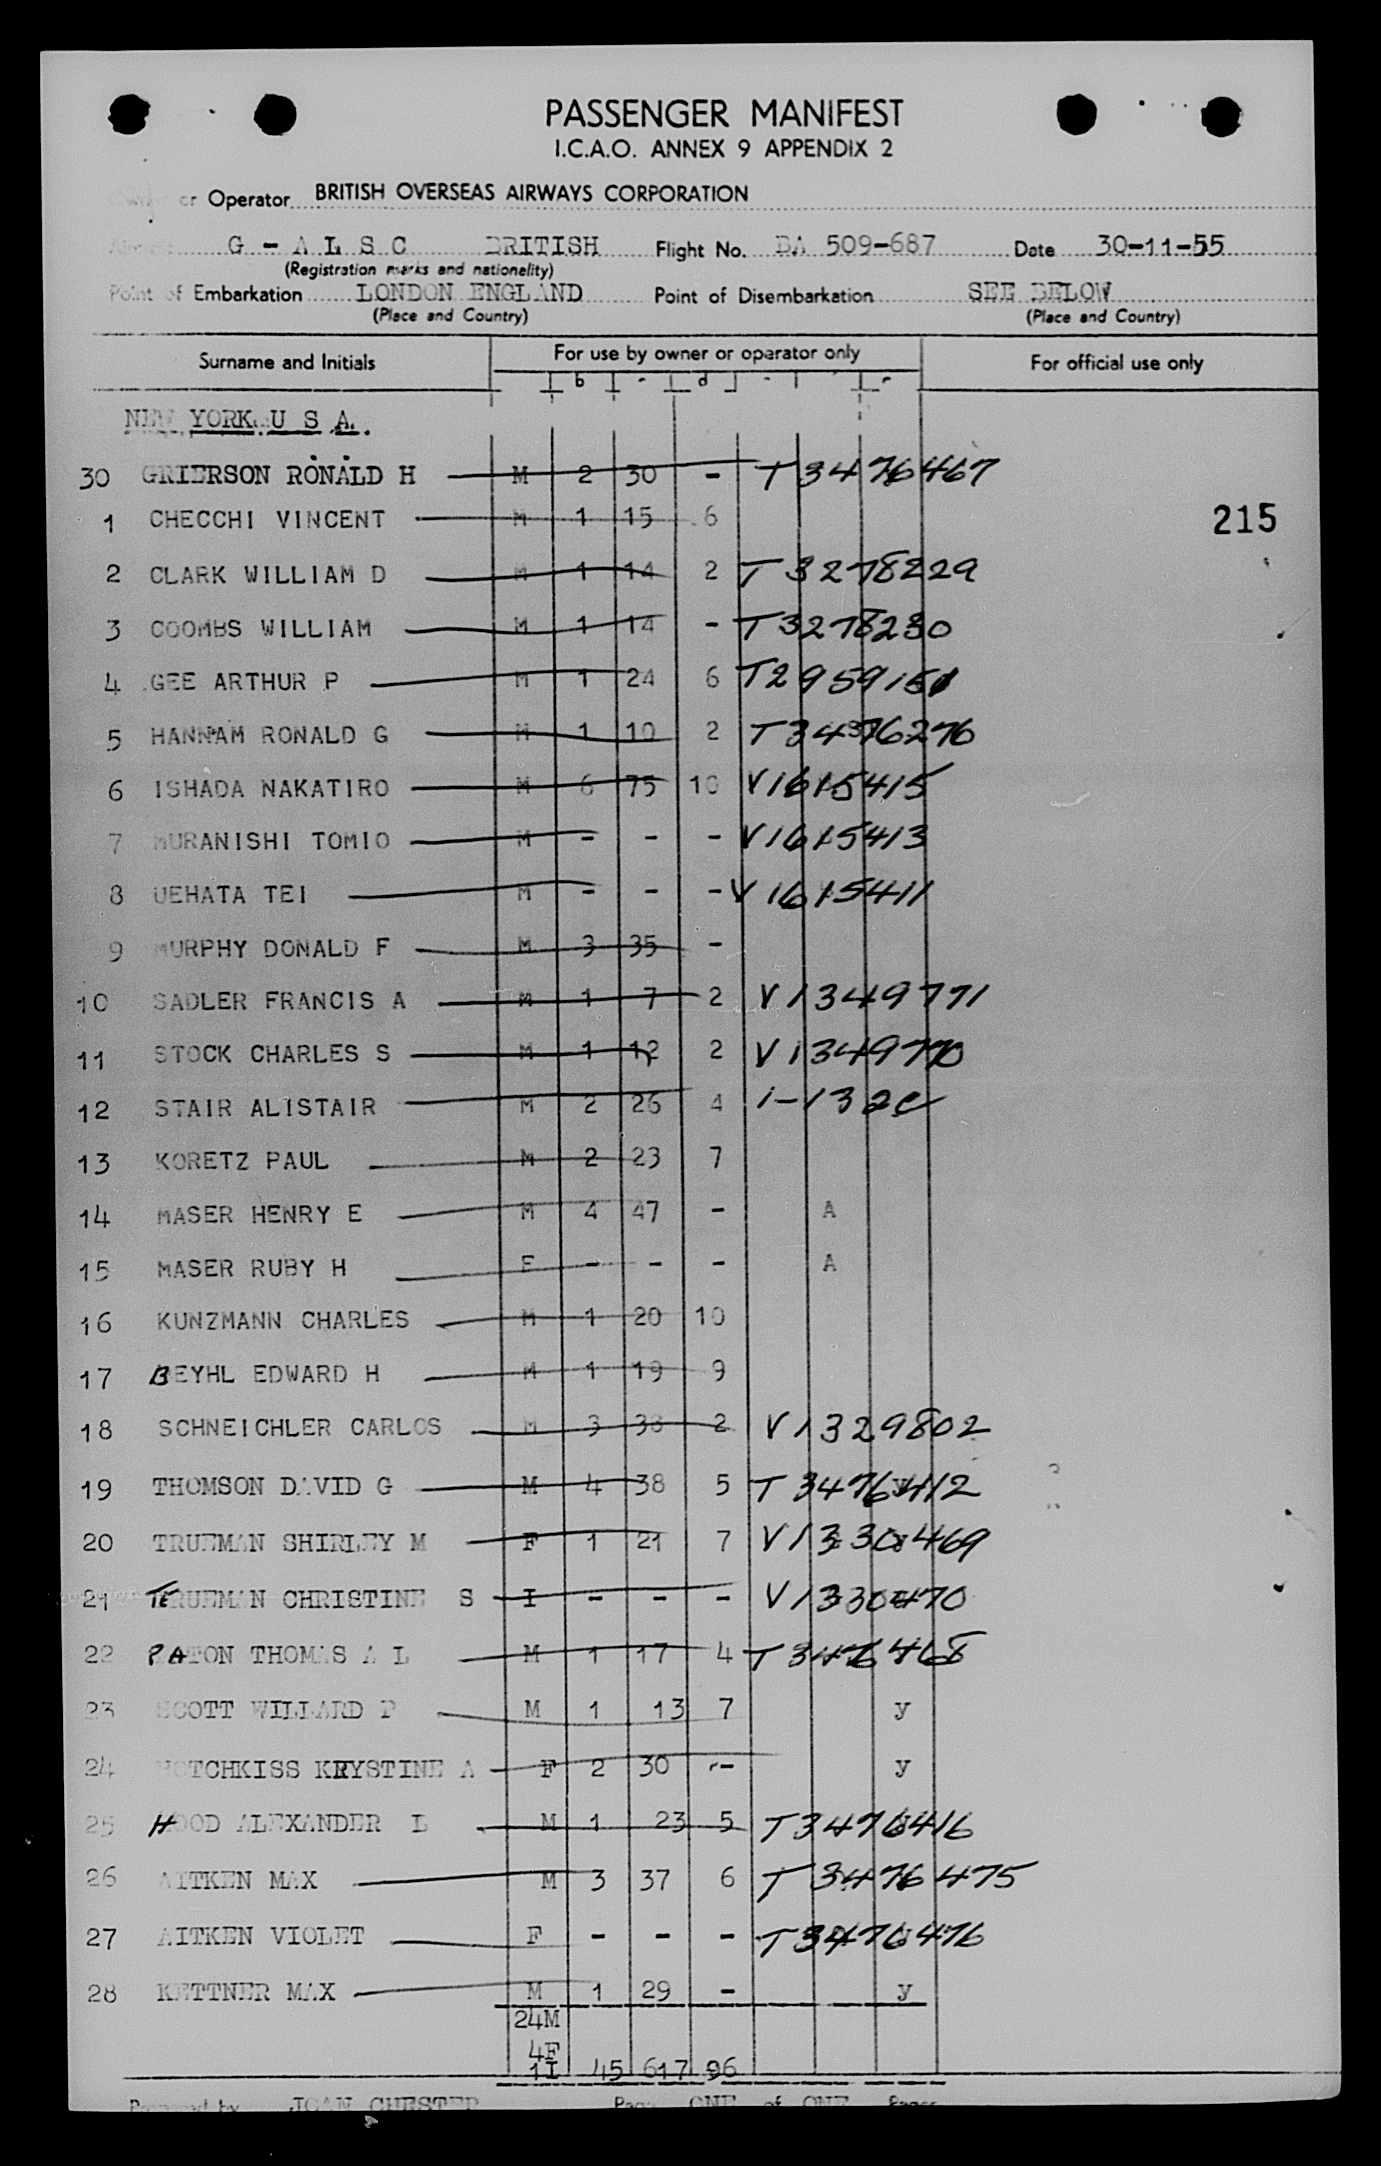 PASSENGER MANIFEST
I.C.A.O. ANNEX 9 APPENDIX 2
or Operator BRITISH OVERSEAS AIRWAYS CORPORATION
G - A L S C BRITISH Flight No. BA 509-687 Date 30-11-55
(Registration marks and nationality)
Point of Embarkation LONDON ENGLAND Point of Disembarkation SEE BELOW
(Place and Country) (Place and Country)
Surname and Initials For use by owner or operator only For official use only
b - d - -
NEW YORK U S A.
30 GRIERSON RONALD H M 2 30 - T 3476467
1 CHECCHI VINCENT M 1 15 6
215
2 CLARK WILLIAM D M 1 14 2 T 3278229
3 COOMBS WILLIAM M 1 14 - T 3278230
4 GEE ARTHUR P M 1 24 6 T2959151
5 HANNAM RONALD G M 1 10 2 T 3476276
6 ISHADA NAKATIRO M 6 75 10 V1615415
7 MURANISHI TOMIO M - - - V1615413
8 UEHATA TEI M - - - V 1615411
9 MURPHY DONALD F M 3 35 -
10 SADLER FRANCIS A M 1 7 2 V 1349771
11 STOCK CHARLES S M 1 12 2 V 1349770
12 STAIR ALISTAIR M 2 26 4 1-132c
13 KORETZ PAUL M 2 23 7
14 MASER HENRY E M 4 47 - A
15 MASER RUBY H F - - - A
16 KUNZMANN CHARLES M 1 20 10
17 BEYHL EDWARD H M 1 19 9
18 SCHNEICHLER CARLOS M 3 38 2 V 1329802
19 THOMSON DAVID G M 4 38 5 T 3476412
20 TRUEMAN SHIRLEY M F 1 21 7 V 1330469
21 TRUEMAN CHRISTINE S I - - - V 1330470
22 PATON THOMAS A L M 1 17 4 T 3476468
23 SCOTT WILLARD P M 1 13 7 y
24 HOTCHKISS KRYSTINE A F 2 30 -- y
25 HOOD ALEXANDER L M 1 23 5 T 3476416
26 AITKEN MAX M 3 37 6 T 3476475
27 AITKEN VIOLET F - - - T3476476
28 KETTNER MAX M 1 29 - y
24M
4F
1I 45 617 96
Prepared by JOAN CHESTER Page ONE of ONE Pages